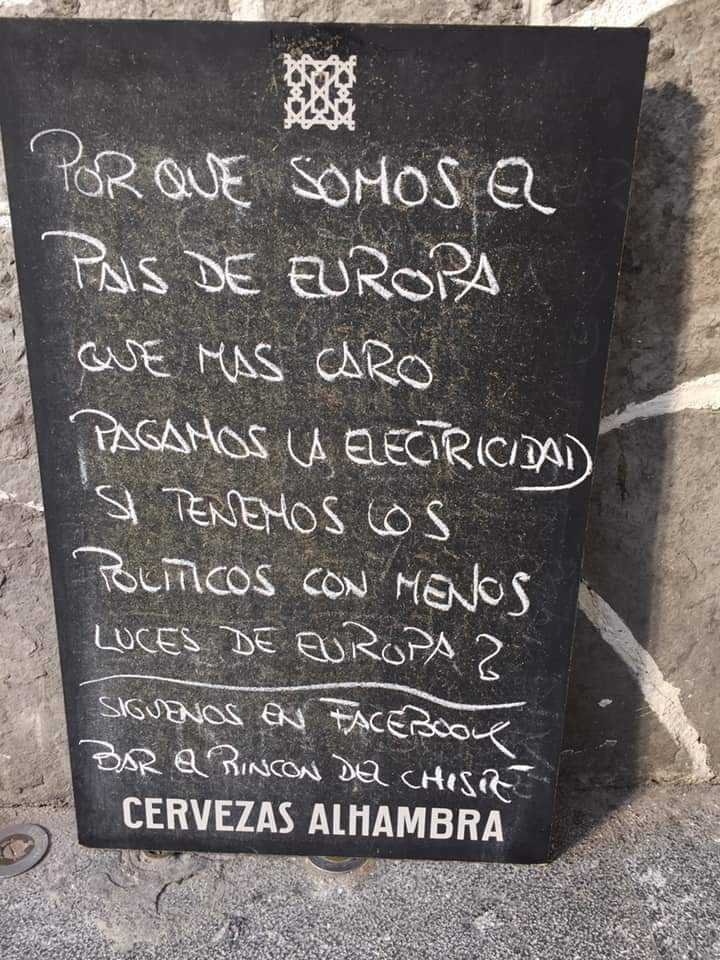 POR QUE SOMOS EL
PAIS DE EUROPA
QUE MAS CARO
PAGAMOS LA ELECTRICIDAD
SI TENEMOS LOS
POLITICOS CON MENOS
LUCES DE EUROPA?
SIGUENOS EN FACEBOOK
BAR EL RINCON DEL CHISTE
CERVEZAS ALHAMBRA